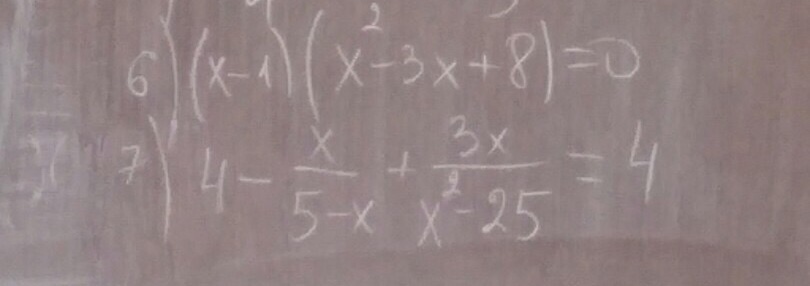 6) (x-1)(x²-3x+8)=0
7) 4 - x/(5-x) + 3x/(x²-25) = 4